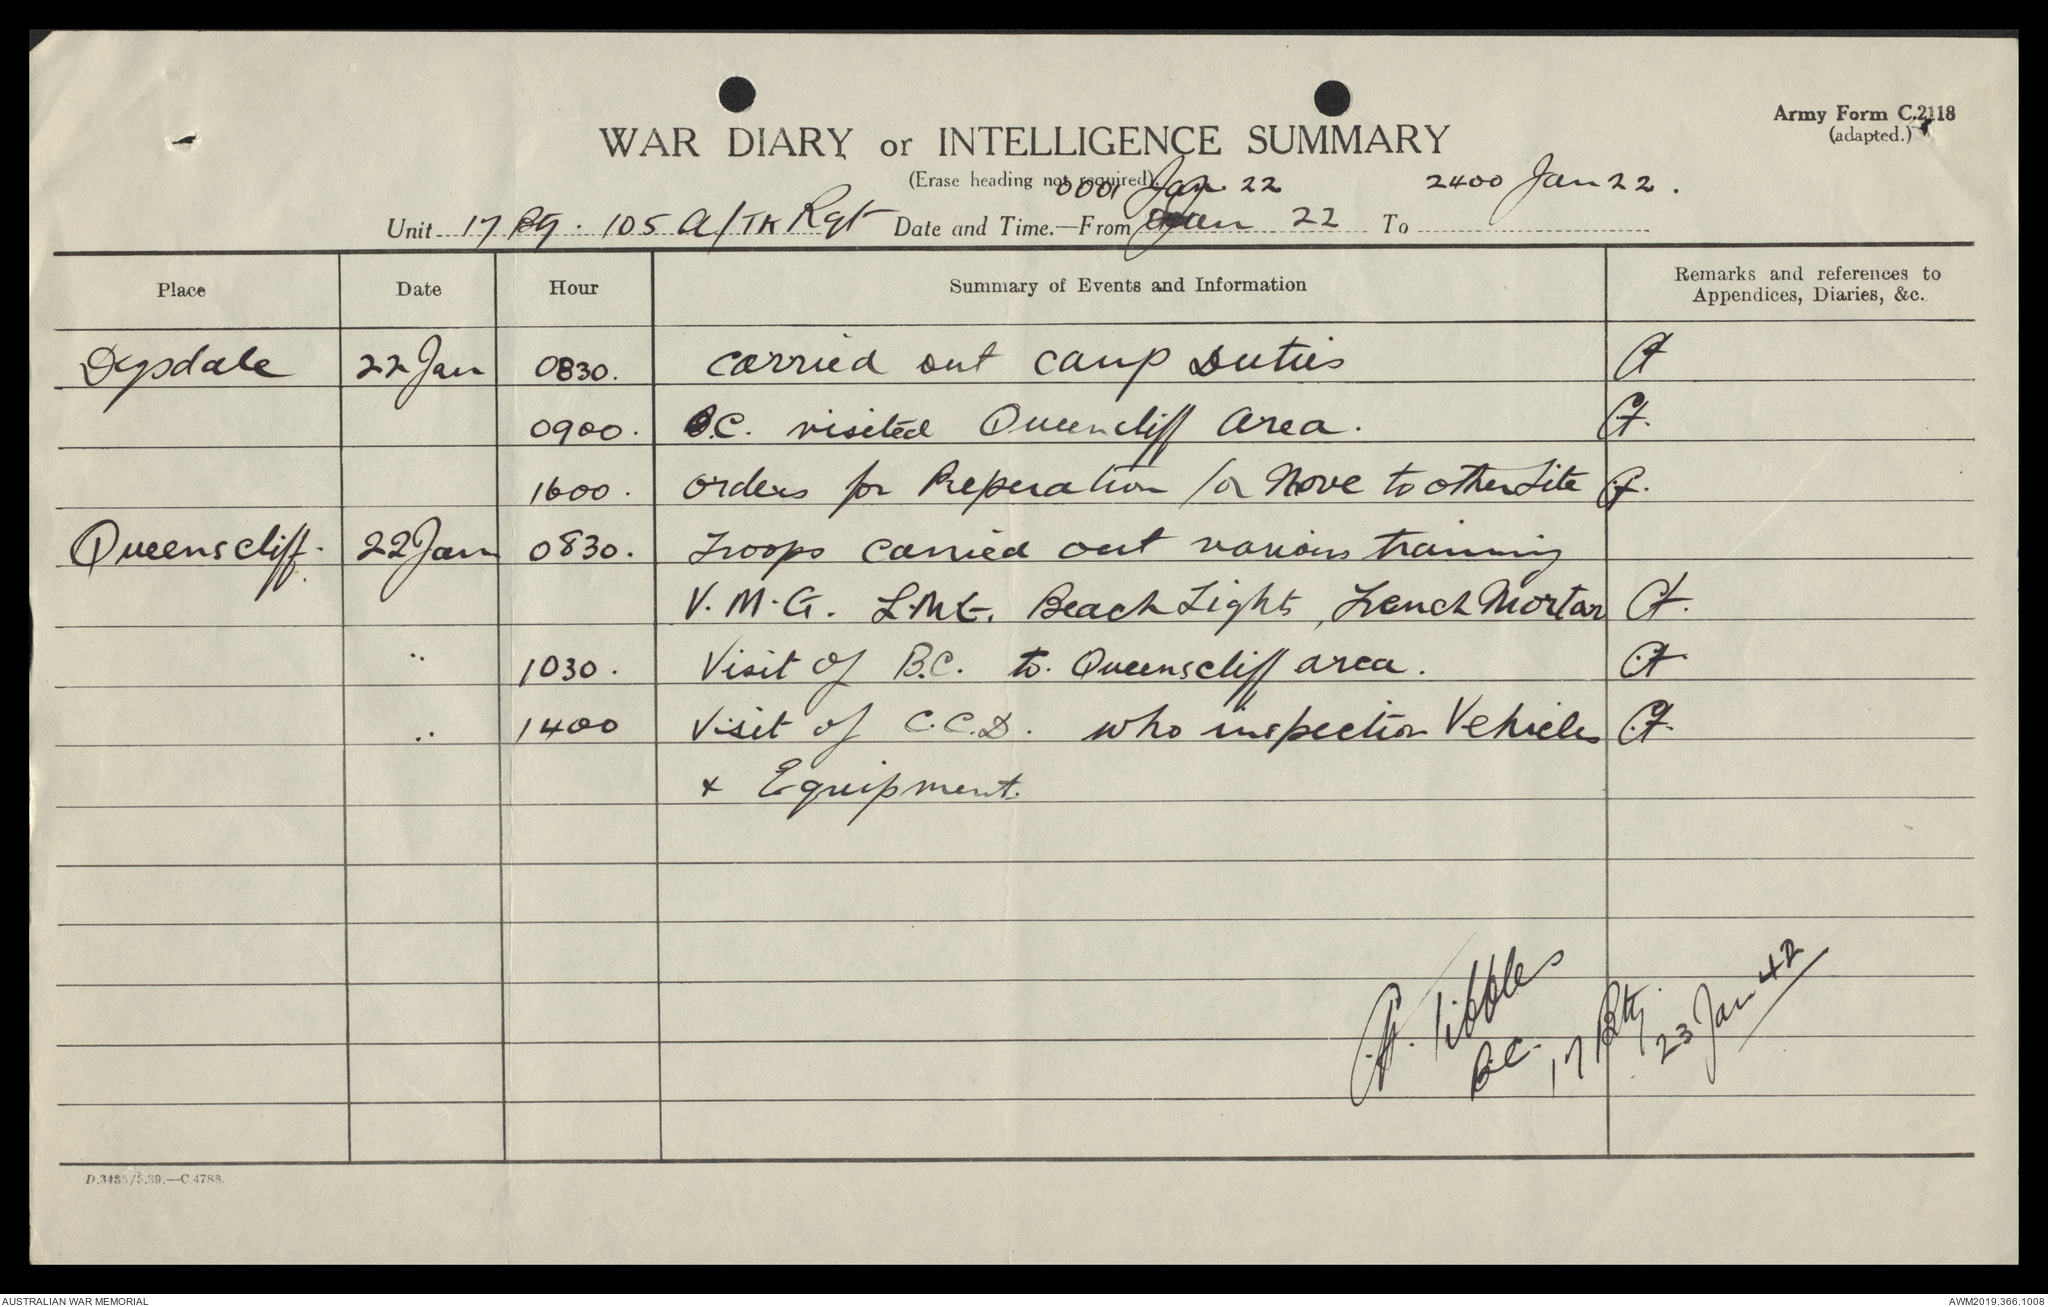 Army Form C.2118
(adapted.)
WAR DIARY or INTELLIGENCE SUMMARY
(Erase heading not required).
0001 Jan 22 2400 Jan 22.
Unit 17 Bty. 105 A/TK Rgt Date and Time.—From Jan 22 To
Place Date Hour Summary of Events and Information Remarks and references to
Appendices, Diaries, &c.
Drysdale 22 Jan 0830. Carried out camp Duties
0900. B.C. visited Queencliff Area.
1600. Orders for Preperation for Move to other Site
Queenscliff. 22 Jan 0830. Troops carried out various training
V.M.G. L.M.G. Beach Lights, Trench Mortar
" 1030. Visit of B.C. to Queenscliff area.
" 1400 Visit of C.C.D. who inspection Vehicles
& Equipment.
Tibbles
B.C. 17 Bty.
23 Jan 42
D.3435/5.39.—C.4788.
AUSTRALIAN WAR MEMORIAL AWM2019.366.1008